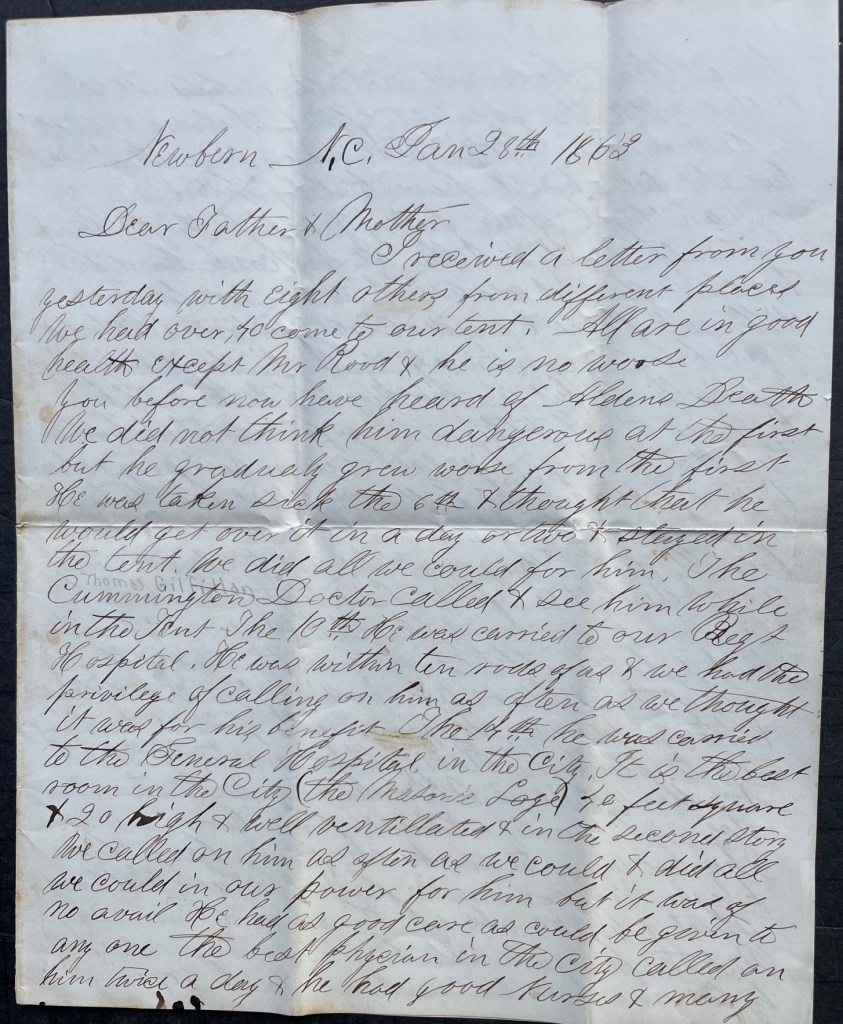 Newbern N.C. Jan 28th 1863
Dear Father & Mother
I received a letter from you
yesterday with eight others from different places
We had over 40 come to our tent. All are in good
health except Mr Rood & he is no worse
You before now have heard of Aldens Death
We did not think him dangerous at the first
but he gradualy grew worse from the first
He was taken sick the 6th & thought that he
would get over it in a day or two & stayed in
the tent. We did all we could for him. The
Thomas Gilfillan
Cummington Doctor called & see him while
in the Tent The 10th He was carried to our Regt
Hospital. He was within ten rods of us & we had the
privilege of calling on him as often as we thought
it was for his benefit The he was carried
to the General Hospital in the City. It is the best
room in the City (the Masonic Loge) 40 feet square
& 20 high & well ventillated & in the second story
We called on him as often as we could & did all
we could in our power for him but it was of
no avail He had as good care as could be given to
any one the best phycian in the City called on
him twice a day & he had good Nurses & many